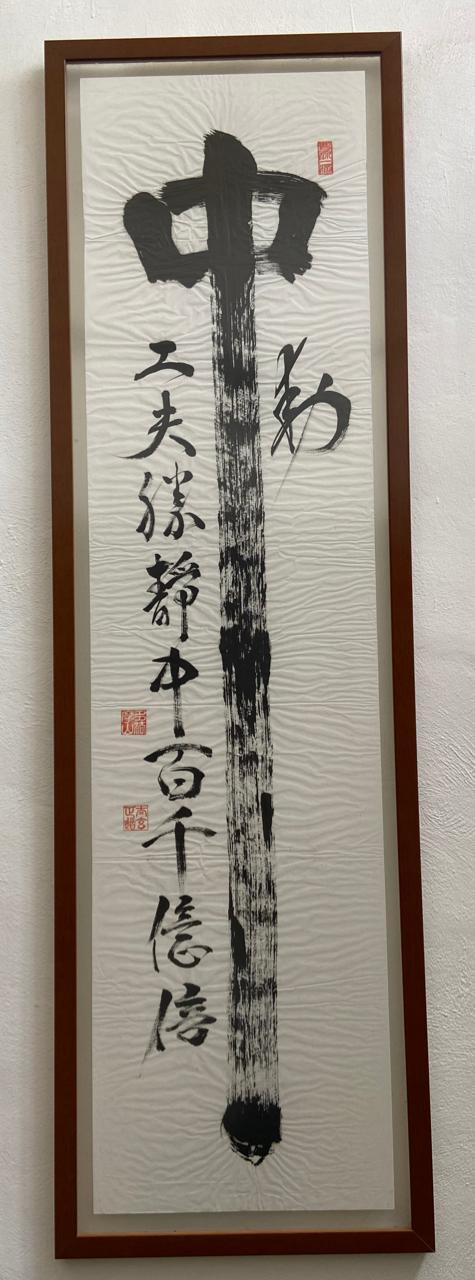 動
中
工夫勝靜中百千億倍